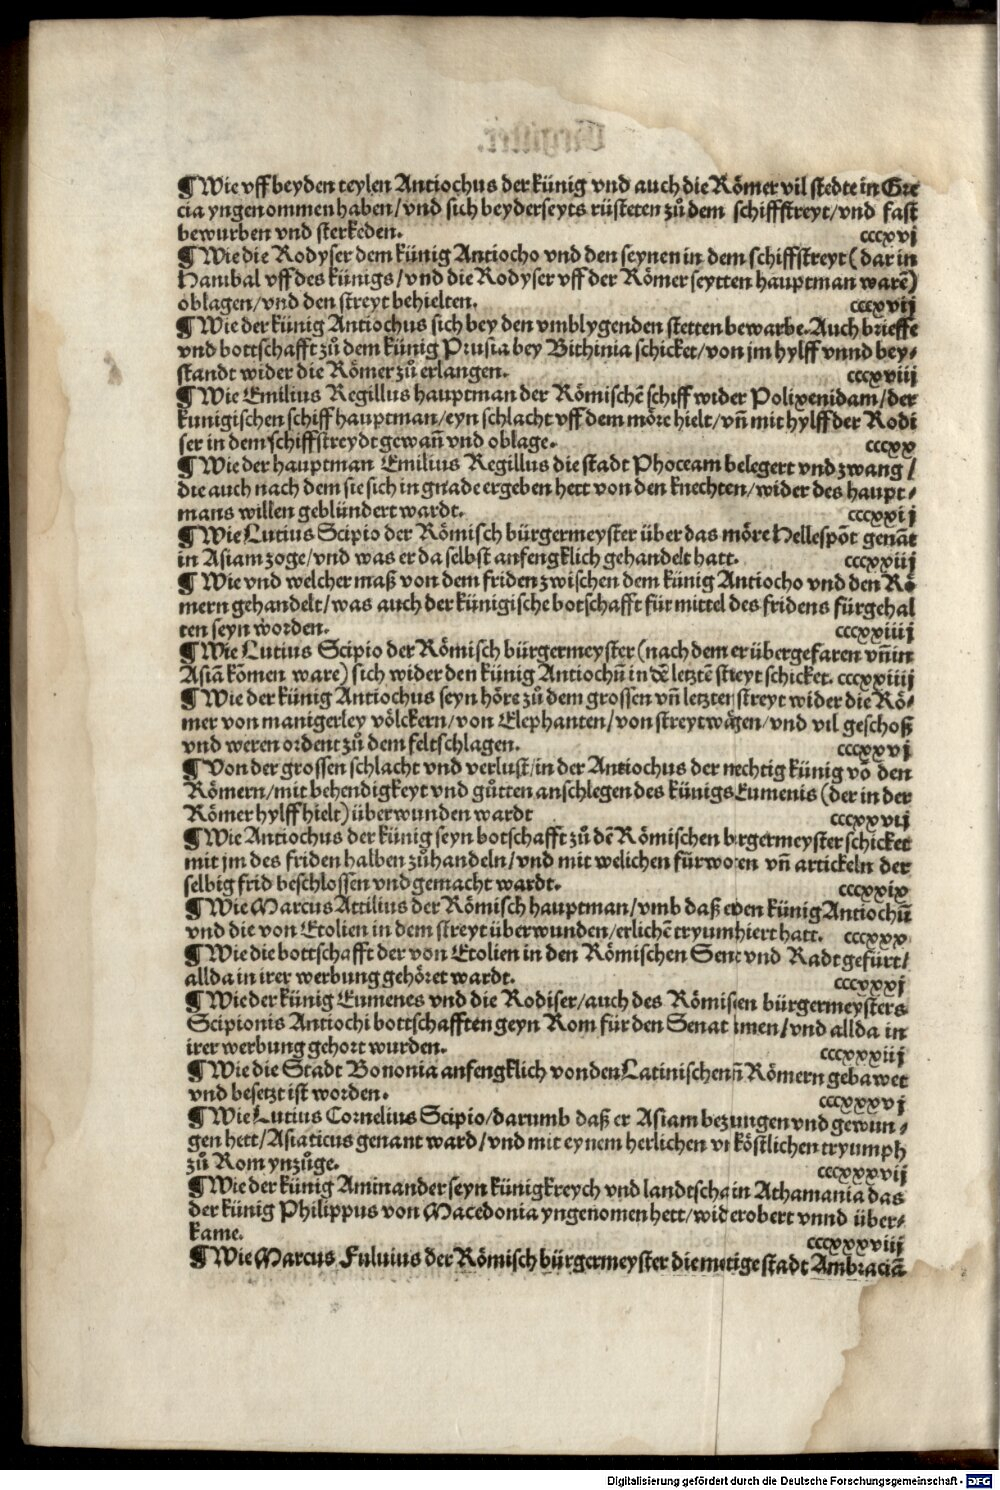 ¶ Wie vff beyden teylen Antiochus der künig vnd auch die Römer vil stedte in Gre
cia yngenommen haben/vnd sich beyderseyts rüsteten zů dem schiffstreyt/vnd fast
bewurben vnd sterkeden. cccxvj
¶ Wie die Rodyser dem künig Antiocho vnd den seynen in dem schiffstreyt (dar in
Hanibal vff des künigs/vnd die Rodyser vff der Römer seytten hauptman warē)
oblagen/vnd den streyt behielten. cccxvij
¶ Wie der künig Antiochus sich bey den vmblygenden stetten bewarbe. Auch brieffe
vnd bottschafft zů dem künig Prusia bey Bithinia schicket/von jm hylff vnnd bey⸗
standt wider die Römer zů erlangen. cccxviij
¶ Wie Emilius Regillus hauptman der Römischē schiff wider Polixenidam/der
kunigischen schiff hauptman/eyn schlacht vff dem möre hielt/vñ mit hylff der Rodi
ser in dem schiffstreydt gewañ vnd oblage. cccxx
¶ Wie der hauptman Emilius Regillus die stadt Phoceam belegert vnd zwang/
die auch nach dem sie sich in gnade ergeben hett von den knechten/wider des haupt⸗
mans willen geblündert wardt. cccxxij
¶ Wie Lutius Scipio der Römisch bürgermeyster über das möre Hellespōt genāt
in Asiam zoge/vnd was er da selbst anfengklich gehandelt hatt. cccxxiij
¶ Wie vnd welcher maß von dem friden zwischen dem künig Antiocho vnd den Rö
mern gehandelt/was auch der künigische botschafft für mittel des fridens fürgehal
ten seyn worden. cccxxiiij
¶ Wie Lutius Scipio der Römisch bürgermeyster (nach dem er übergefaren vñ in
Asiā kōmen ware) sich wider den künig Antiochū in dē letztē streyt schicket. cccxxiiij
¶ Wie der künig Antiochus seyn höre zů dem grossen vñ letzten streyt wider die Rö⸗
mer von manigerley völckern/von Elephanten/von streytwägen/vnd vil geschoß
vnd weren ordent zů dem feltschlagen. cccxxvj
¶ Von der grossen schlacht vnd verlust/in der Antiochus der mechtig künig vō den
Römern/mit behendigkeyt vnd gůtten anschlegen des künigs Eumenis (der in der
Römer hylff hielt) überwunden wardt cccxxvij
¶ Wie Antiochus der künig seyn botschafft zů dē Römischen bürgermeyster schicket
mit jm des friden halben zůhandeln/vnd mit welichen fürworten vñ artickeln der
selbig frid beschlossen vnd gemacht wardt. cccxxix
¶ Wie Marcus Attilius der Römisch hauptman/vmb daß er den künig Antiochū
vnd die von Etolien in dem streyt überwunden/erlichē tryumhiert hatt. cccxxx
¶ Wie die bottschafft der von Etolien in den Römischen Senat vnd Radt gefürt/
allda in irer werbung gehöret wardt. cccxxxj
¶ Wie der künig Eumenes vnd die Rodiser/auch des Römischen bürgermeysters
Scipionis Antiochi bottschafften geyn Rom für den Senat kmen/vnd allda in
irer werbung gehort wurden. cccxxxiij
¶ Wie die Stadt Bononia anfengklich von den Latinischen vñ Römern gebawet
vnd besetzt ist worden. cccxxxvj
¶ Wie Lutius Cornelius Scipio/darumb daß er Asiam bezungen vnd gewun⸗
gen hett/Asiaticus genant ward/vnd mit eynem herlichen vñ köstlichen tryumph
zů Rom ynzůge. cccxxxvij
¶ Wie der künig Aminander seyn künigkreych vnd landtschafft in Athamania das
der künig Philippus von Macedonia yngenomen hett/widerobert vnnd über⸗
kame. cccxxxviij
¶ Wie Marcus Fuluius der Römisch bürgermeyster die stadt Ambraciā
Digitalisierung gefördert durch die Deutsche Forschungsgemeinschaft - DFG